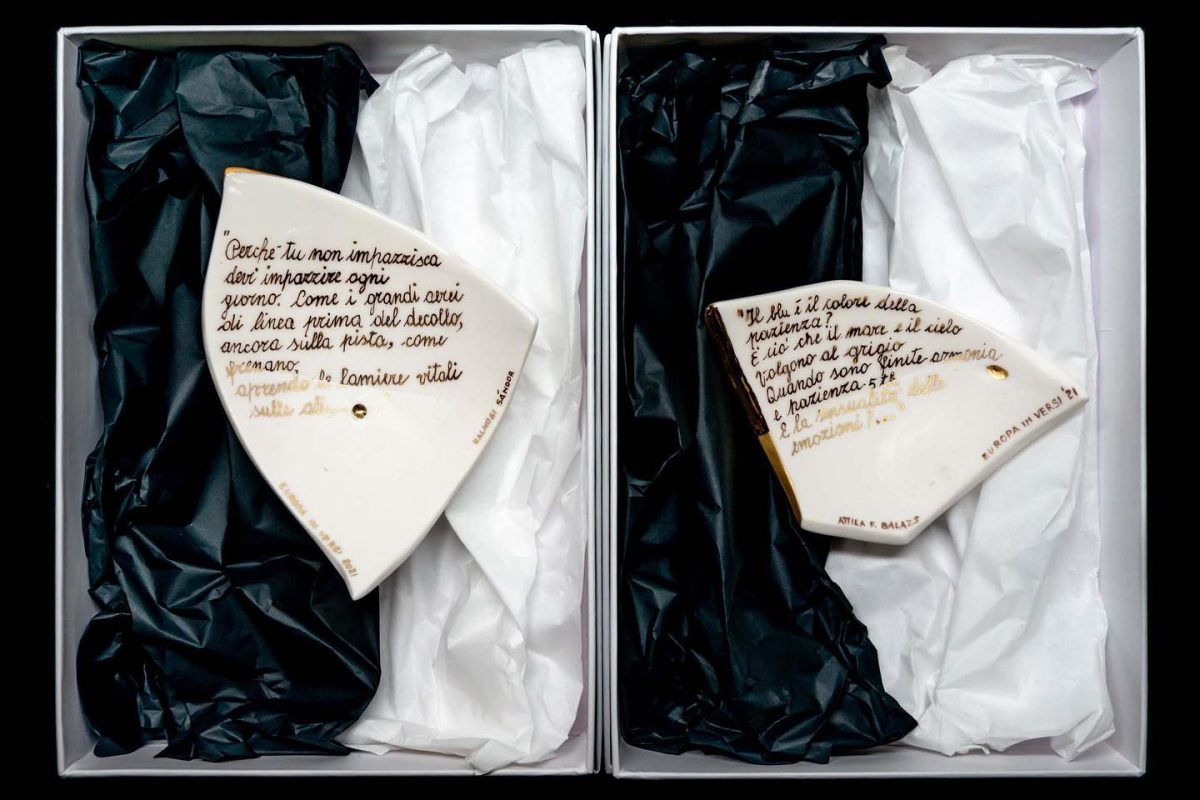 "Perché tu non impazzisca
devi impazzire ogni
giorno. Come i grandi aerei
di linea prima del decollo,
ancora sulla pista, come
frenano,
aprendo le lamiere vitali
sulle
HALMOSI SÁNDOR
EUROPA IN VERSI 2021
"Il blu é il colore della
pazienza?
É ció che il mare e il cielo
volgono al grigio
Quando sono finite armonia
e pazienza.
E la sensualità delle
emozioni?..."
EUROPA IN VERSI '21
ATTILA F. BALAZS